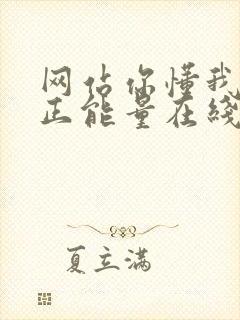 网站你懂我
正能量在线
夏立满